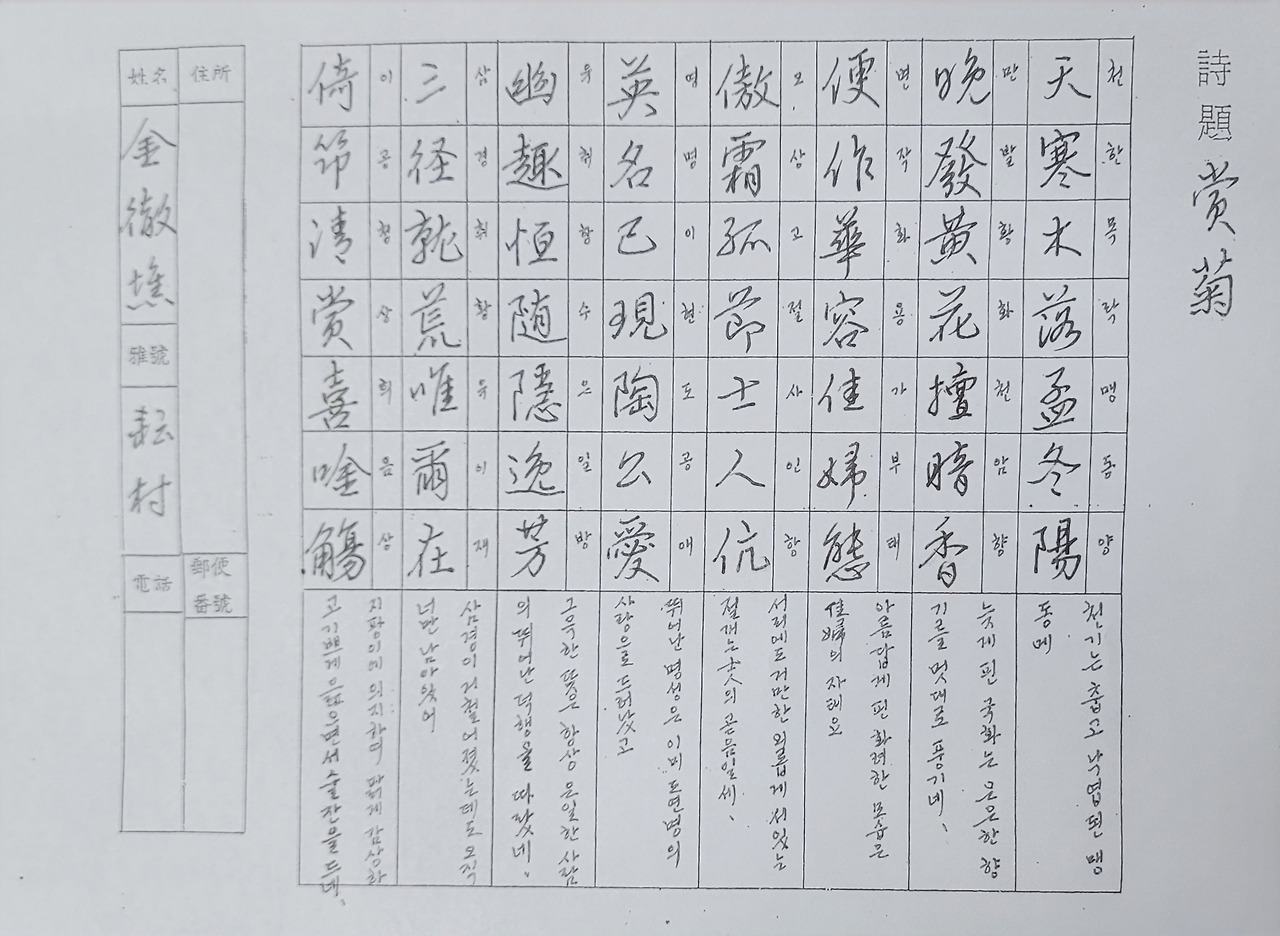 詩題 賞菊
天寒木落孟冬陽
천한목락맹동양
천기는 춥고 낙엽띈 맹
동에
晚發黃花擅暗香
만발황화천암향
늦게 핀 국화는 은은한 향
기를 멋대로 풍기네、
便作華容佳婦態
면작화용가부태
아름답게 핀 화려한 모습은
佳婦의 자태요
傲霜孤節士人伉
오상고절사인항
서리에도 거만한 외롭게 서있는
절개는 곳의 곧음일세、
英名已現陶公愛
영명이현도공애
뛰어난 명성은 이미 도연명의
사랑으로 드러났고
幽趣恒随隱逸芳
유취항수은일방
그윽한 뜻은 항상 은일한 사람
의 뛰어난 덕행을 따랐네、
三径就荒唯爾在
삼경취황유이재
삼경이 거칠어졌는데도 오직
너만 남아있어
倚筇清賞喜唫觴
이공청상희음상
지팡이에 의지하며 맑게 감상하
고 기쁘게 읊으면서 술잔을 드네、
住所
郵便番號
姓名
金徹
雅號
耘村
電話